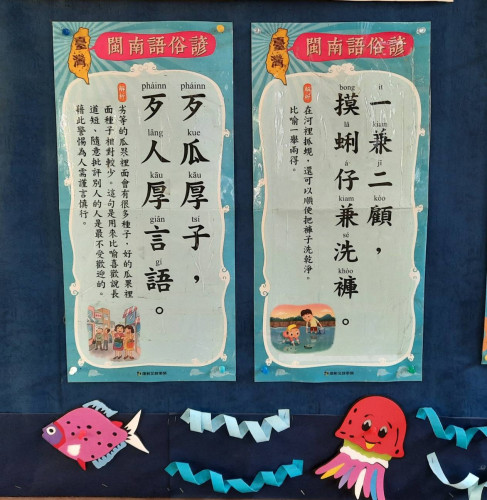 臺灣
閩南語俗諺
pháinn kue kāu tsí
歹瓜厚子，
pháinn lâng kāu giân gí
歹人厚言語。
解析
劣等的瓜果裡面會有很多種子，好的瓜果裡
面種子相對較少。這句是用來比喻喜歡說長
道短、隨意批評別人的人是最不受歡迎的。
藉此警惕為人需謹言慎行。
臺灣
閩南語俗諺
it kiam jī kòo
一兼二顧，
bong lâ á kiam sé khòo
摸蜊仔兼洗褲。
解析
在河裡抓蜆，還可以順便把褲子洗乾淨。
比喻一舉兩得。